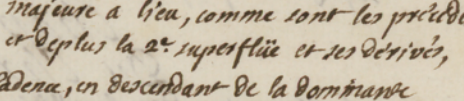 majeure a lieu, comme sont les précéde
et deplus la 2e. superflüe et ses dérivés,
cadence, en descendant de la dominante